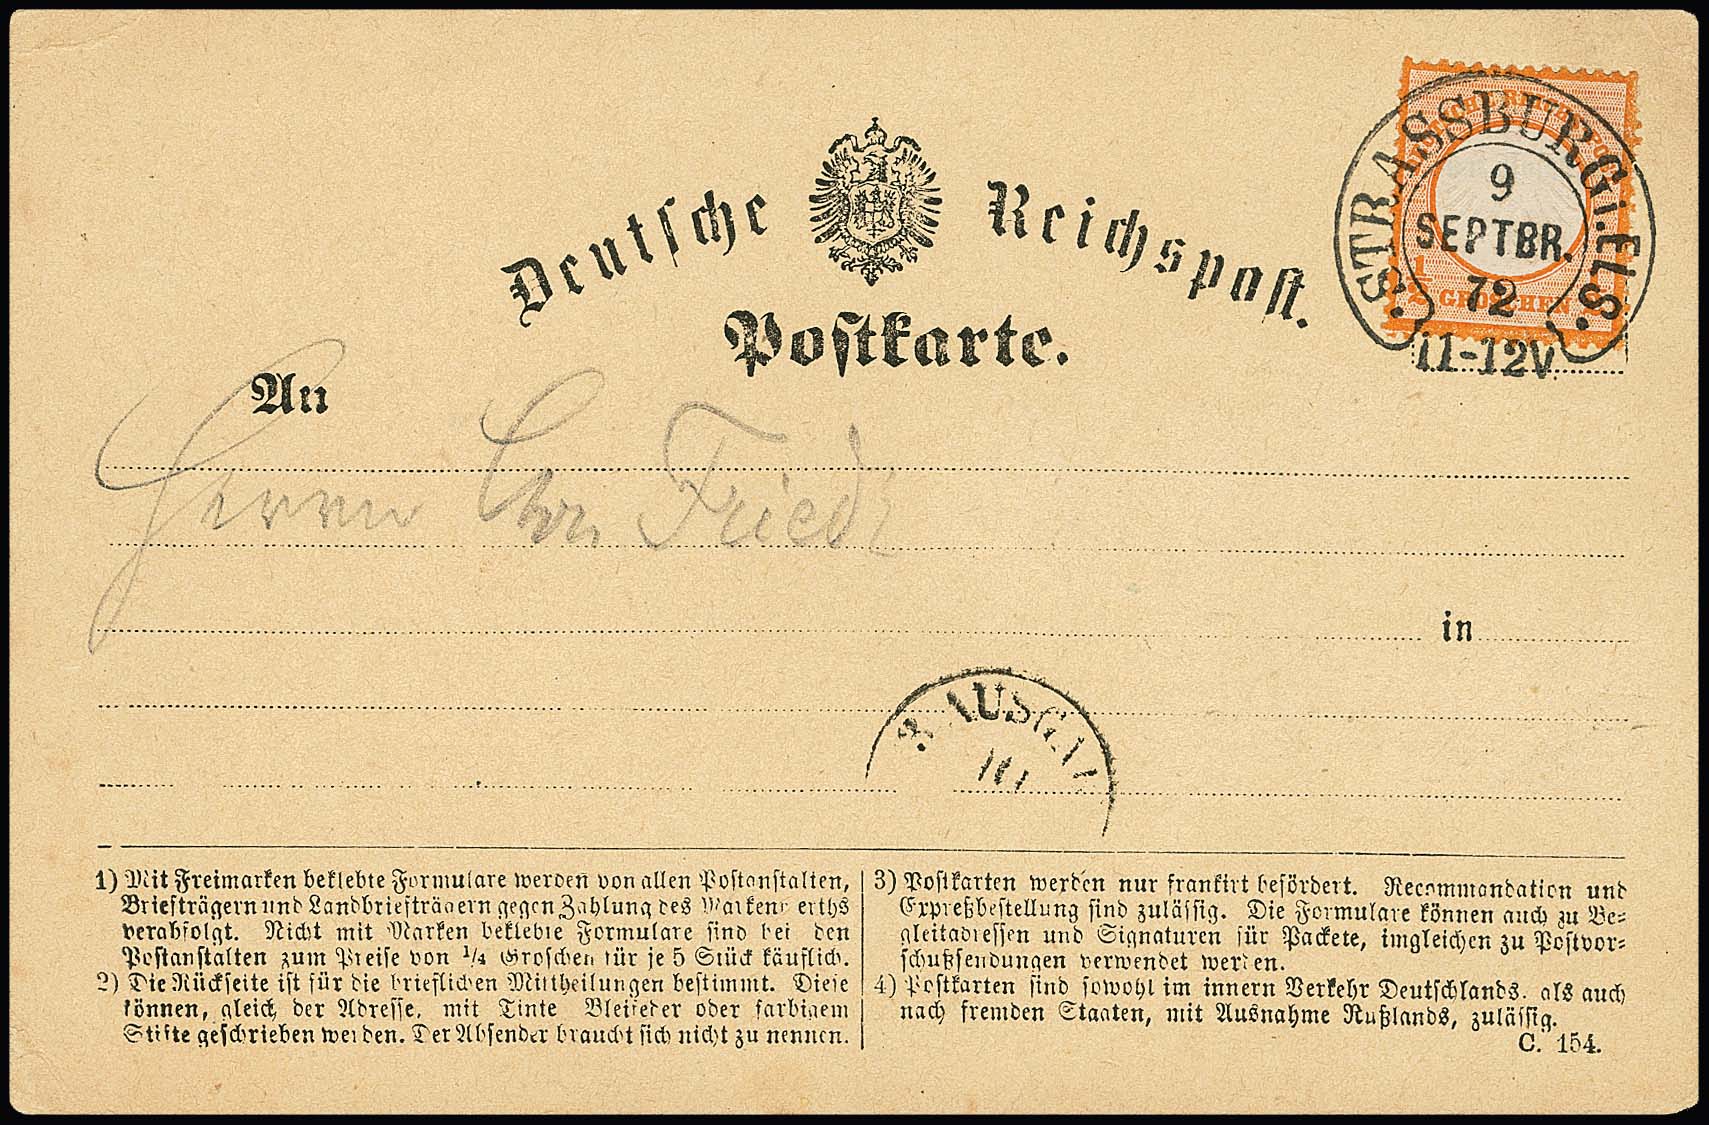 Deutsche Reichspost.
Postkarte.
DEUTSCHE REICHS-POST
1/2 GROSCHEN
STRASSBURG i. Els.
9
SEPTBR.
72
11-12V.
An
Herrn Chr. Friedr
in
1) Mit Freimarken beklebte Formulare werden von allen Postanstalten,
Briefträgern und Landbriefträgern gegen Zahlung des Markenwerths
verabfolgt. Nicht mit Marken beklebte Formulare sind bei den
Postanstalten zum Preise von 1/4 Groschen für je 5 Stück käuflich.
2) Die Rückseite ist für die brieflichen Mittheilungen bestimmt. Diese
können, gleich der Adresse, mit Tinte Bleifeder oder farbigem
Stifte geschrieben werden. Der Absender braucht sich nicht zu nennen.
3) Postkarten werden nur frankirt befördert. Recommandation und
Expreßbestellung sind zulässig. Die Formulare können auch zu Be-
gleitadressen und Signaturen für Packete, imgleichen zu Postvor-
schußsendungen verwendet werden.
4) Postkarten sind sowohl im innern Verkehr Deutschlands, als auch
nach fremden Staaten, mit Ausnahme Rußlands, zulässig.
C. 154.